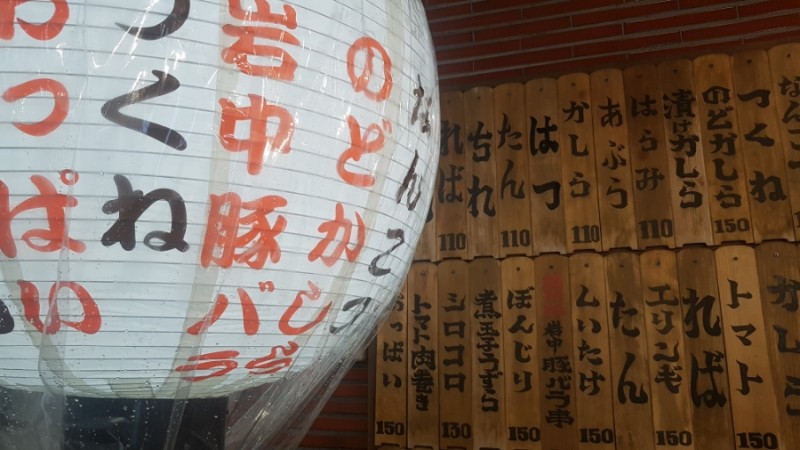 なんこつ
のどかしら
岩中豚バラ
つくね
おっぱい
なんこつ
つくね
のどかしら 150
漬けかしら
はらみ 110
あぶら
かしら 110
はつ
たん 110
ちれ
れば 110
かしら
トマト 150
れば
エリンギ 150
たん
しいたけ 150
岩中豚バラ串
ぼんじり 150
煮玉子うずら
シロコロ 130
トマト肉巻き
おっぱい 150